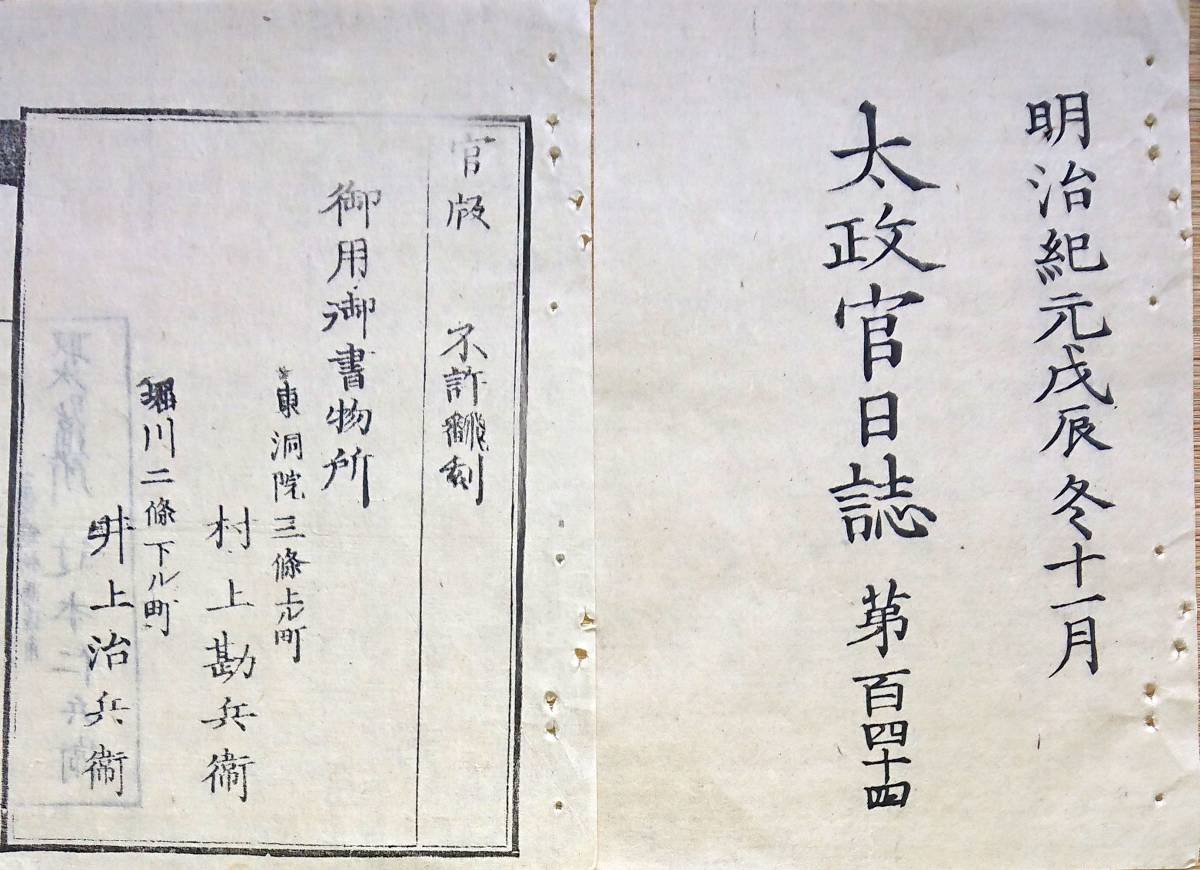 明治紀元戊辰冬十一月
太政官日誌 第百四十四
官版 不許翻刻
御用御書物所
東洞院三條上ル町
村上勘兵衞
堀川二條下ル町
井上治兵衞